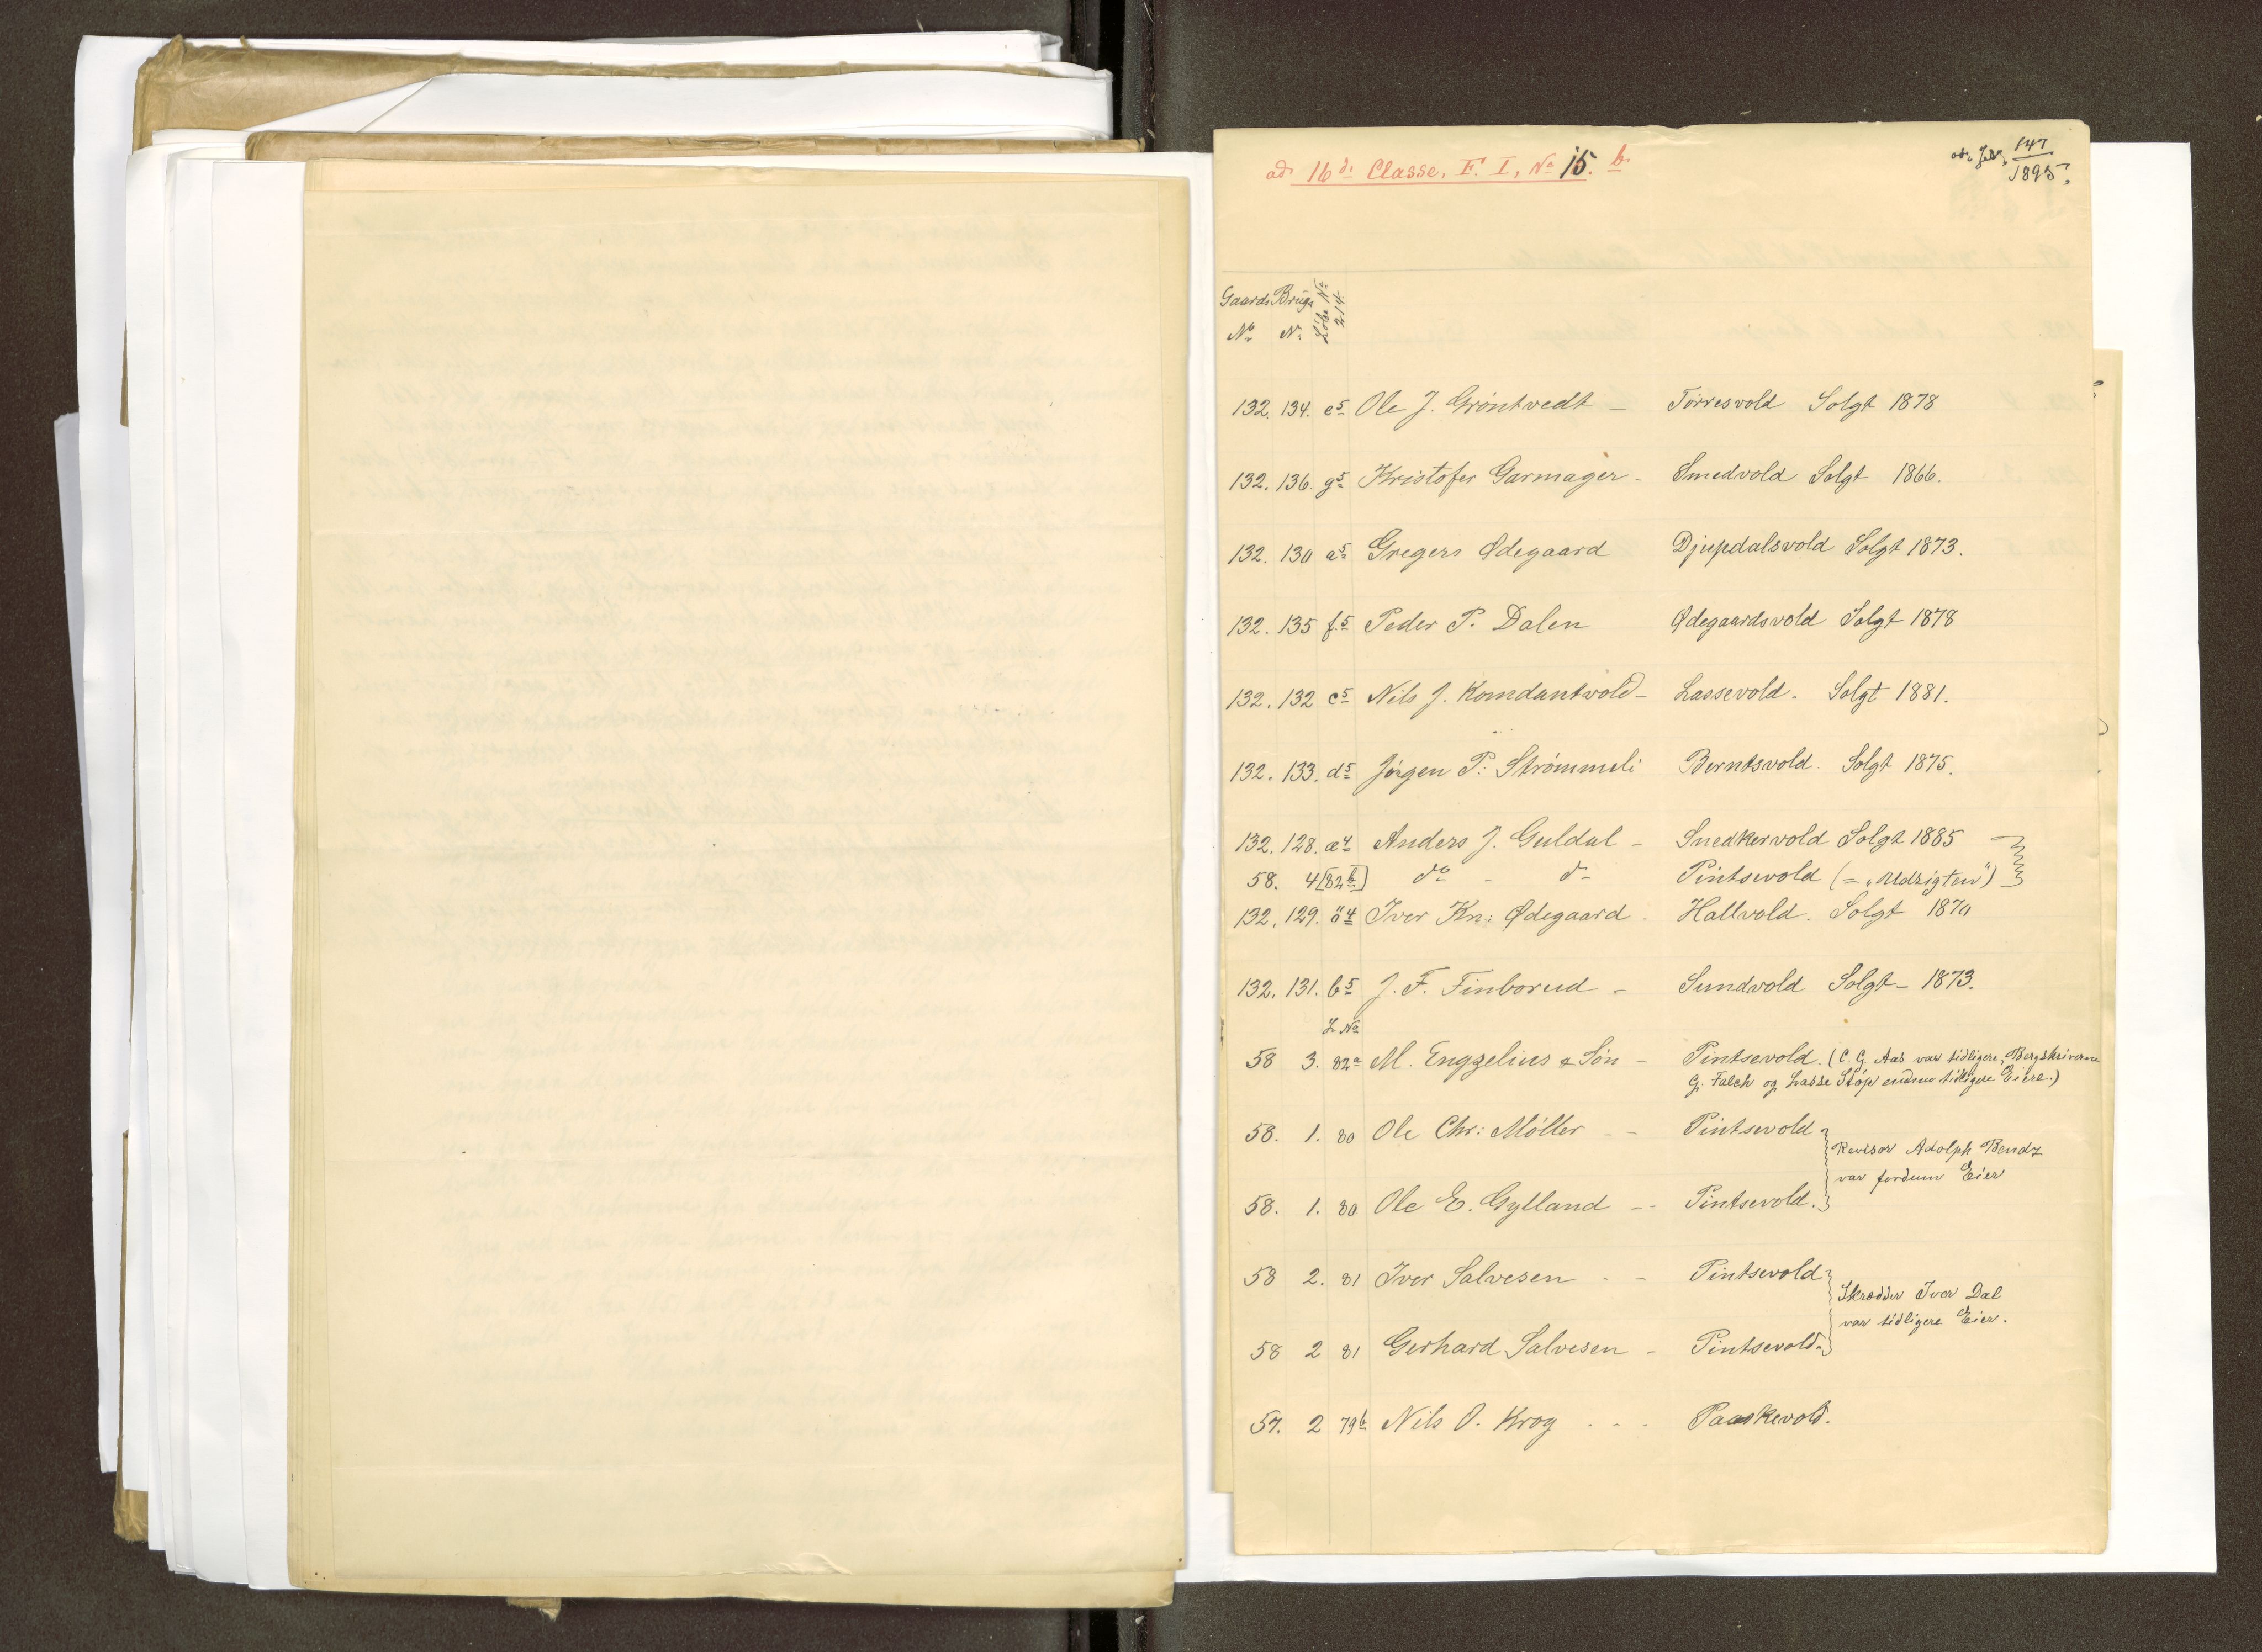 ad 16de Classe, F. I, No 15. b.
ad. Jdr. 147
1895.
Gaards Brugs Löbe No
No No 214
132. 134. e5 Ole J. Gröntvedt - Törresvold Solgt 1878
132. 136. g5 Kristofer Garmager - Smedvold Solgt 1866.
132. 130 a5 Gregers Ødegaard Djupdalsvold Solgt 1873.
132. 135 f.5 Peder P. Dalen Ødegaardsvold Solgt 1878
132. 132 c5 Nils J. Komdantvold - Lassevold. Solgt 1881.
132. 133. d5 Jörgen P: Strömmeli Berntsvold. Solgt 1875.
132. 128. æ4 Anders J. Guldal - Snedkervold Solgt 1885
58. 4 [82b] do - do Pintsevold (= „Udsigten")
132. 129. ö4 Iver Kn: Ødegaard. Hallvold. Solgt 1870
132. 131. b5 J. F. Finborud - Sundvold Solgt - 1873.
L No
58 3. 82a M. Engzelius & Sön - Pintsevold. (C. G. Aas var tidligere, Bergskriverne
G. Falch og Lasse Stöp endnu tidligere Eiere.)
58. 1. 80 Ole Chr: Möller - - Pintsevold
Revisor Adolph Bendz
var fordum Eier
58. 1. 80 Ole E. Gylland - - Pintsevold.
58 2. 81 Iver Salvesen - - Pintsevold
Skrædder Iver Dal
var tidligere Eier.
58 2 81 Gerhard Salvesen - Pintsevold.
57. 2 79b Nils O. Krog - - - Paaskevold.